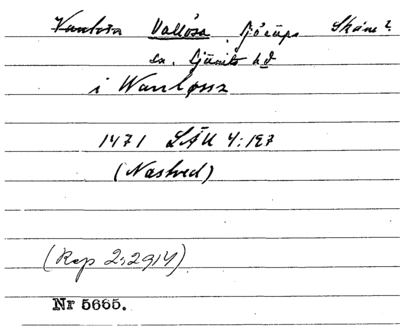 Vanløsa Vallösa Sjörups Skåne?
sn. Ljunits hd
i Wanløsa
1471 LÄU 4:197
(Næstved)
(Rep 2:2914)
Nr 5665.